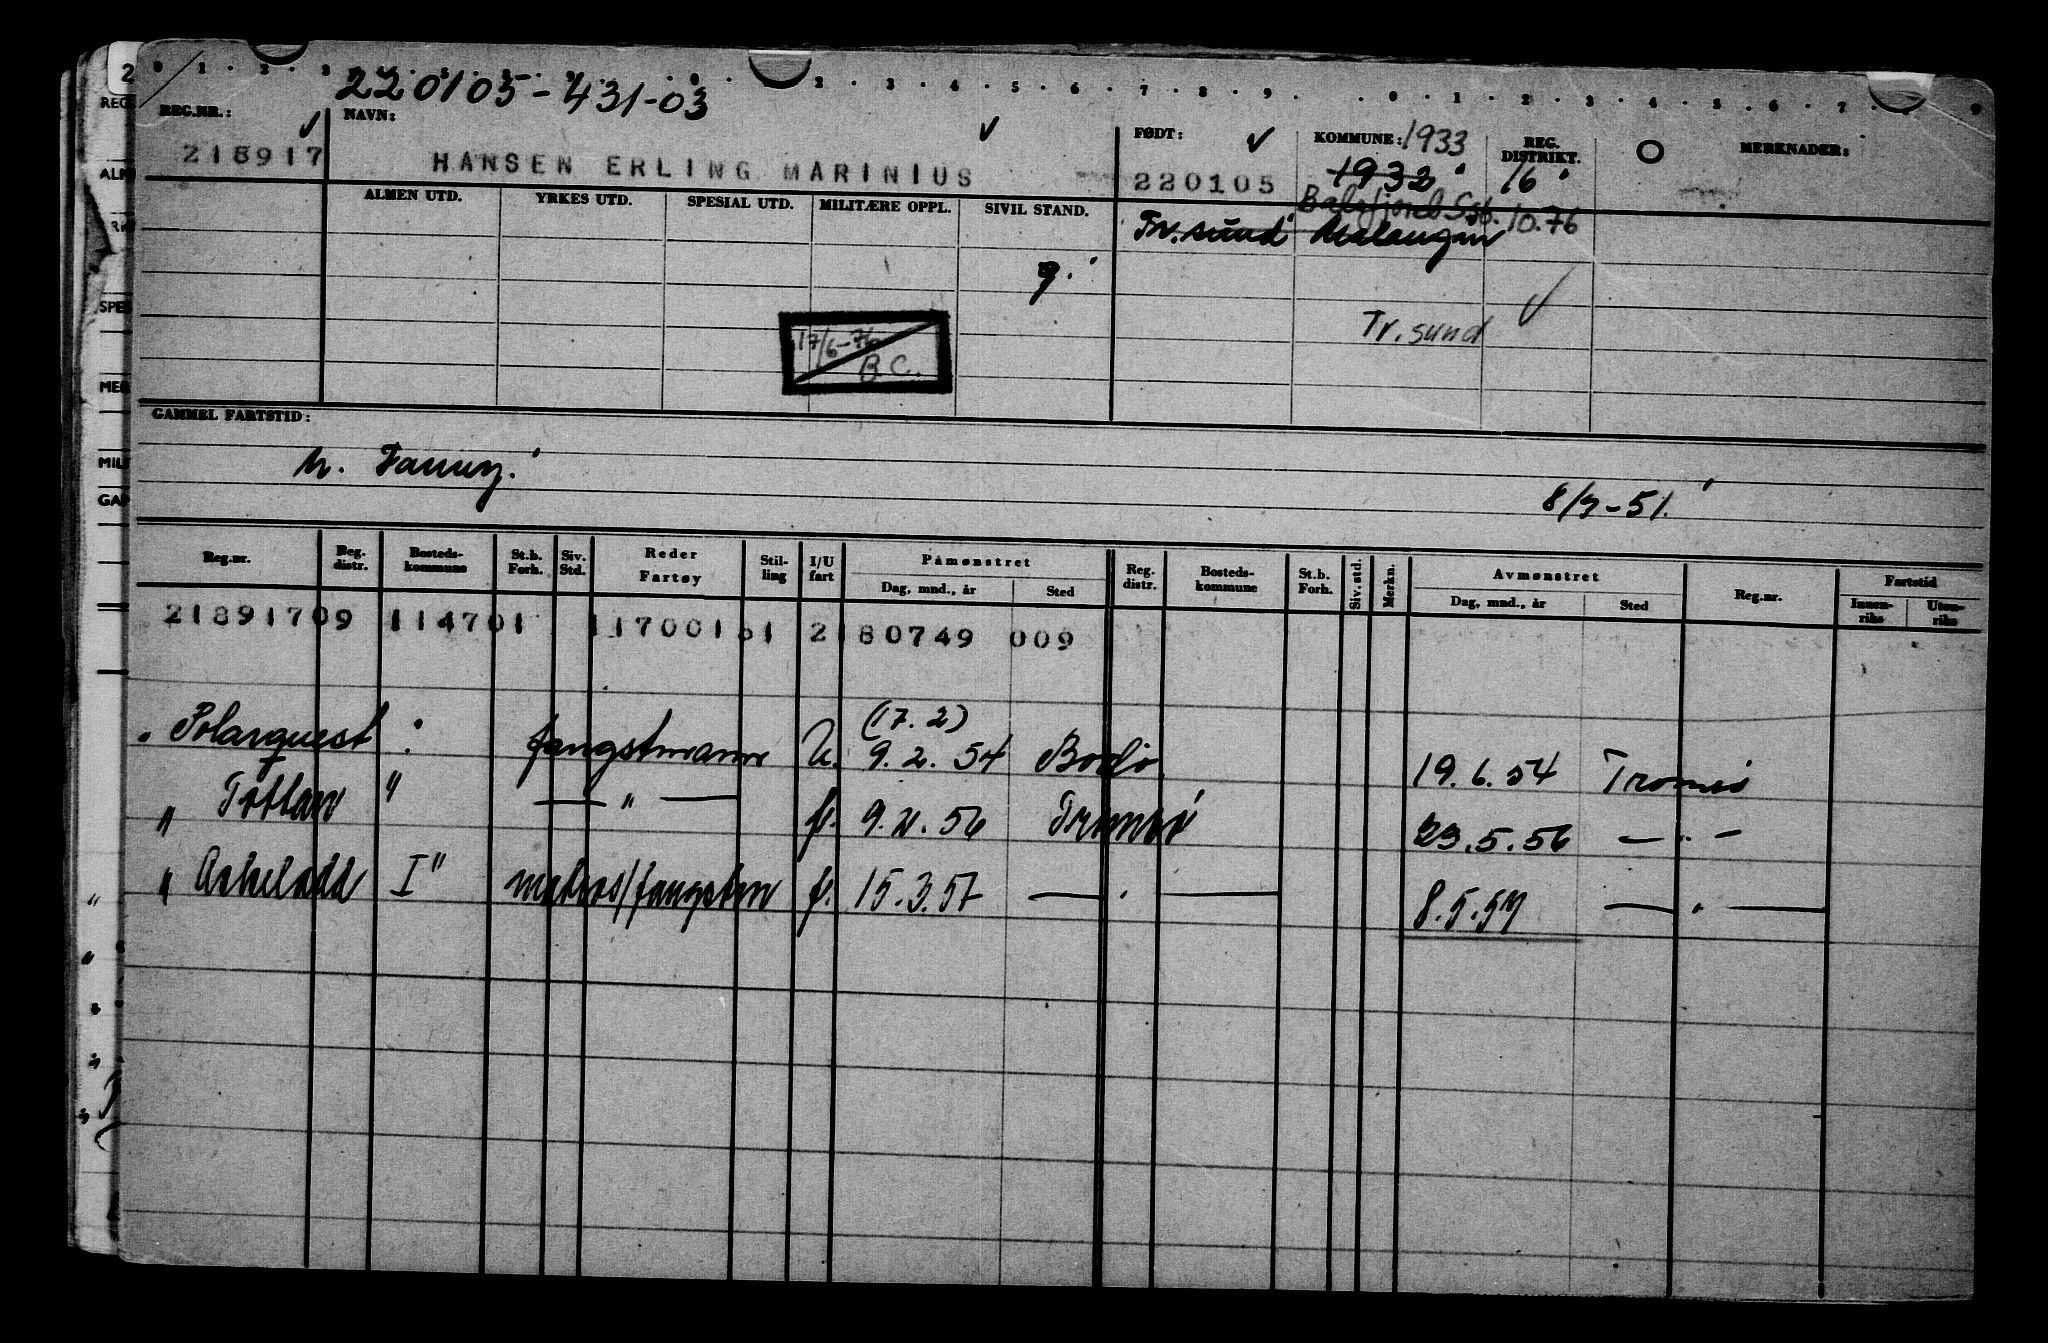 220105-431-03
REG.NR.: NAVN: FØDT: KOMMUNE: 1933 REG. DISTRIKT. O MERKNADER:
218917 HANSEN ERLING MARINIUS 220105 1932 16
ALMEN UTD. YRKES UTD. SPESIAL UTD. MILITÆRE OPPL. SIVIL STAND. Balsfjord 10.76
Tr.sund Malangen
g.
Tr.sund
17/6-76
B.C.
GAMMEL FARTSTID:
8/9-51.
Reg.nr. Reg. distr. Bosteds-kommune St.b. Forh. Siv. Std. Reder Fartøy Stil-ling I/U fart Påmønstret Reg. distr. Bosteds-kommune St.b. Forh. Siv. std. Merkn. Avmønstret Reg.nr. Fartstid
Dag, mnd., år Sted Dag, mnd., år Sted Innen-riks Uten-riks
21891709 114701 11700161 2180749 009
(17.2)
"Polarquest" fangstmann U. 9.2.54 Bodø 19.6.54 Tromsø
"Tottan" — " — f. 9.2.56 Tromsø 23.5.56 — " —
"Askeladd I" matros/fangstm f. 15.3.57 — " — 8.5.57 — " —